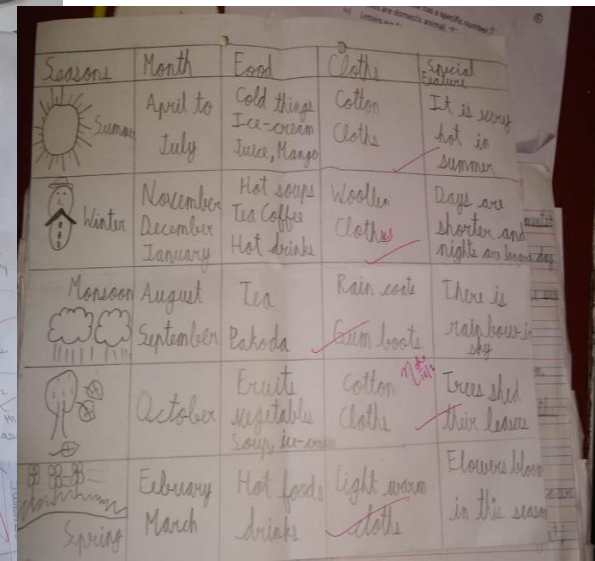 has a specific number.
are domestic animal.
Letters are
Seasons Month Food Cloths Special Feature
Summer
April to
July
Cold things
Ice-cream
Juice, Mango
Cotton
Cloths
It is very
hot in
summer
Winter
November
December
January
Hot soups
Tea Coffee
Hot drinks
Woollen
Clothes
Days are
shorter and
nights are
day
Monsoon
August
September
Tea
Pakoda
Rain coats
Gum boots
There is
rainbow in
sky
October
Fruits
vegetables
Soup, ice-cream
Cotton
Cloths
Trees shed
their leaves
Spring
February
March
Hot foods
drinks
Light warm
cloths
Flowers bloom
in this season